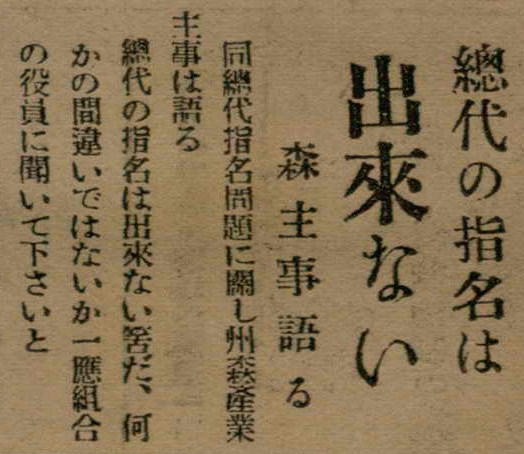 總代の指名は
出來ない
森主事語る
同總代指名問題に關し州森產業
主事は語る
總代の指名は出來ない筈だ、何
かの間違いではないか一應組合
の役員に聞いて下さいと